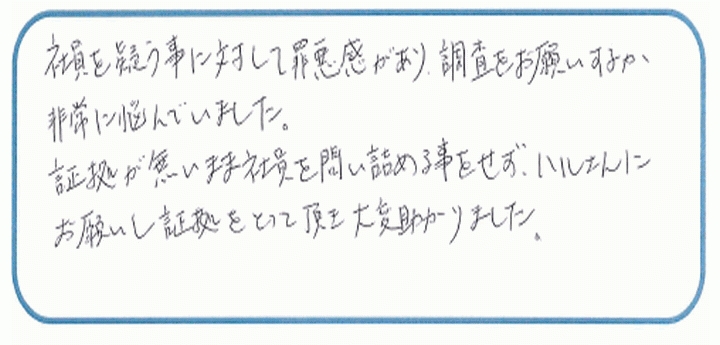 社員を疑う事に対して罪悪感があり、調査をお願いするか、
非常に悩んでいました。
証拠が無いまま社員を問い詰める事をせず、ハルさんに
お願いし証拠をとって頂き大変助かりました。